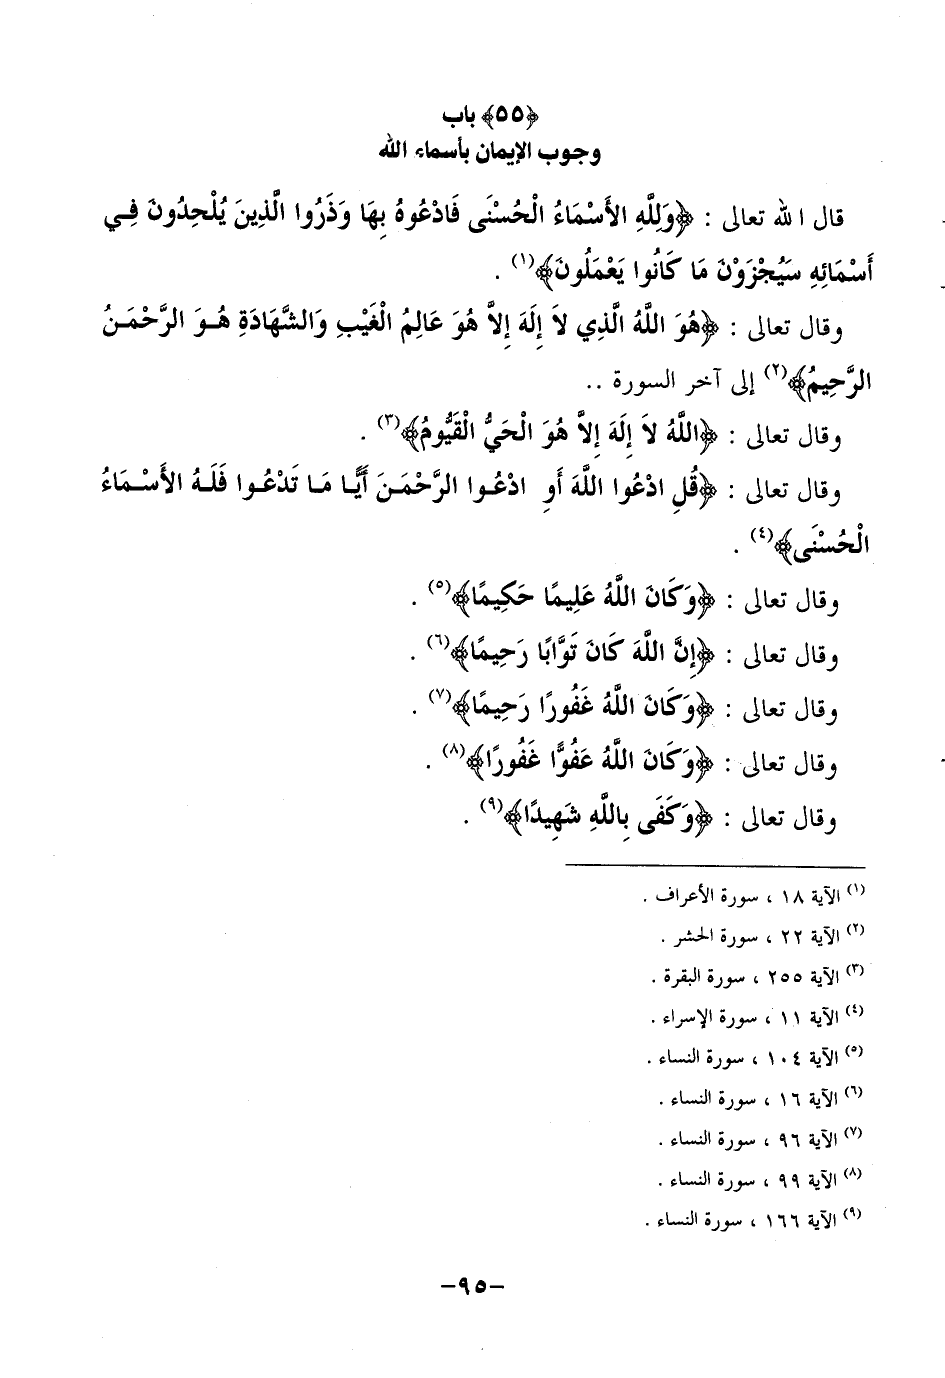 ﴿٥٥﴾ باب
وجوب الإيمان بأسماء الله
قال الله تعالى : ﴿وَلِلَّهِ الأَسْمَاءُ الْحُسْنَى فَادْعُوهُ بِهَا وَذَرُوا الَّذِينَ يُلْحِدُونَ فِي
أَسْمَائِهِ سَيُجْزَوْنَ مَا كَانُوا يَعْمَلُونَ﴾(١) .
وقال تعالى : ﴿هُوَ اللَّهُ الَّذِي لاَ إِلَهَ إِلاَّ هُوَ عَالِمُ الْغَيْبِ وَالشَّهَادَةِ هُوَ الرَّحْمَنُ
الرَّحِيمُ﴾(٢) إلى آخر السورة ..
وقال تعالى : ﴿اللَّهُ لاَ إِلَهَ إِلاَّ هُوَ الْحَيُّ الْقَيُّومُ﴾(٣) .
وقال تعالى : ﴿قُلِ ادْعُوا اللَّهَ أَوِ ادْعُوا الرَّحْمَنَ أَيًّا مَا تَدْعُوا فَلَهُ الأَسْمَاءُ
الْحُسْنَى﴾(٤) .
وقال تعالى : ﴿وَكَانَ اللَّهُ عَلِيمًا حَكِيمًا﴾(٥) .
وقال تعالى : ﴿إِنَّ اللَّهَ كَانَ تَوَّابًا رَحِيمًا﴾(٦) .
وقال تعالى : ﴿وَكَانَ اللَّهُ غَفُورًا رَحِيمًا﴾(٧) .
وقال تعالى : ﴿وَكَانَ اللَّهُ عَفُوًّا غَفُورًا﴾(٨) .
وقال تعالى : ﴿وَكَفَى بِاللَّهِ شَهِيدًا﴾(٩) .
(١) الآية ١٨ ، سورة الأعراف .
(٢) الآية ٢٢ ، سورة الحشر .
(٣) الآية ٢٥٥ ، سورة البقرة .
(٤) الآية ١١ ، سورة الإسراء .
(٥) الآية ١٠٤ ، سورة النساء .
(٦) الآية ١٦ ، سورة النساء .
(٧) الآية ٩٦ ، سورة النساء .
(٨) الآية ٩٩ ، سورة النساء .
(٩) الآية ١٦٦ ، سورة النساء .
-٩٥-